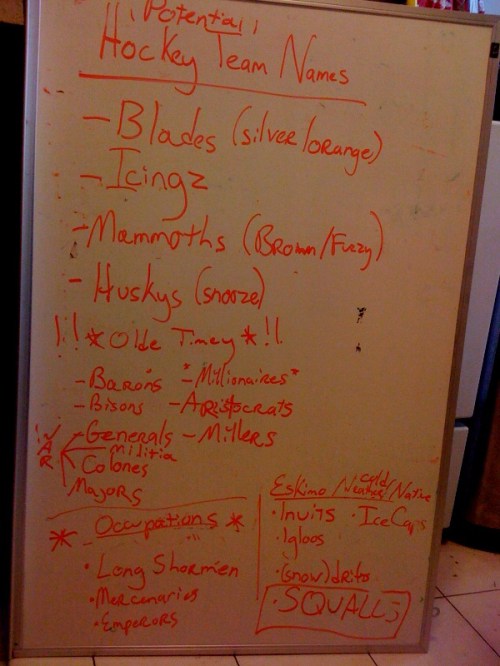 !! Potential !!
Hockey Team Names
- Blades (silver/orange)
- Icingz
- Mammoths (Brown/Fuzzy)
- Huskys (snooze)
!! * Olde Timey * !!
- Barons * - Millionaires *
- Bisons - Aristocrats
- Generals - Millers
WAR
militia
Colones
Majors
* Occupations *
• Long Shormen
• Mercenaries
• Emperors
Eskimo / cold Weather / Native
• Inuits • Ice Caps
• Igloos
• (snow) drifts
• SQUALLS